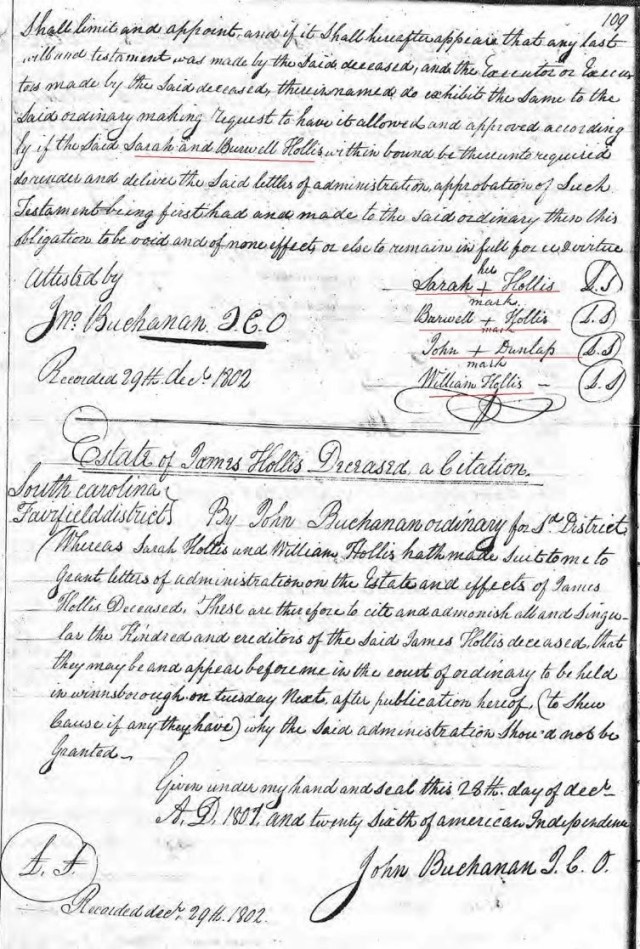 109
Shall limit and appoint, and if it Shall hereafter appear that any last
will and testament was made by the Said deceased, and the Executor or Execu
tors made by the Said deceased, therein named, do exhibit the Same to the
Said ordinary making request to have it allowed and approved according
ly if the Said Sarah and Burwell Hollis within bound be thereunto required
do render and deliver the Said letters of administration, approbation of Such
Testament being first had and made to the Said ordinary then this
obligation to be void and of none effect or else to remain in full force & virtue
Attested by
Jno. Buchanan J.C.O
Recorded 29th. decr. 1802
her
Sarah + Hollis L.S
mark
Burwell + Hollis L.S
mark
John + Dunlap L.S
mark
William Hollis – L.S
Estate of James Hollis Deceased. a Citation.
South carolina
Fairfield district
By John Buchanan ordinary for Sd. District
Whereas Sarah Hollis and William Hollis hath made Suit to me to
Grant letters of administration on the Estate and effects of James
Hollis Deceased. These are therefore to cite and admonish all and Singu-
lar the Kindred and creditors of the said James Hollis deceased, that
they may be and appear before me in the court of ordinary to be held
in winnsborough on tuesday Next, after publication hereof, (to Shew
Cause if any they have) why the Said administration Shou'd not be
Granted –
Given under my hand and seal this 28th. day of decr.
A.D. 1801. and twenty Sixth of american Independence
John Buchanan J.C.O.
L.S.
Recorded decr. 29th. 1802.